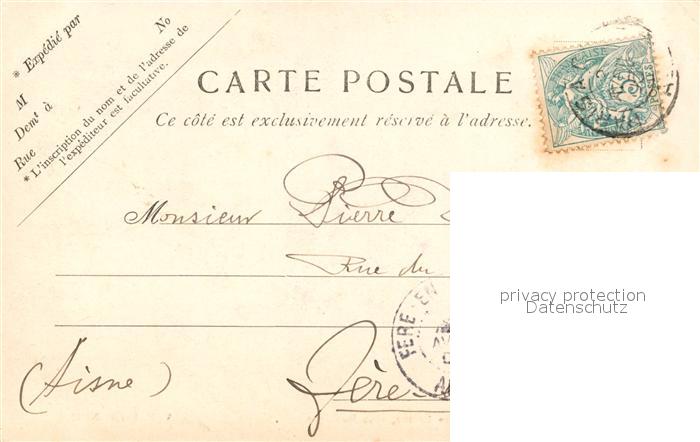 * Expédié par
No
M
Demt à
Rue
* L'inscription du nom et de l'adresse de
l'expéditeur est facultative.
CARTE POSTALE
Ce côté est exclusivement réservé à l'adresse.
Monsieur Pierre
Rue du
(Aisne)
Fère
FERE-EN
privacy protection
Datenschutz